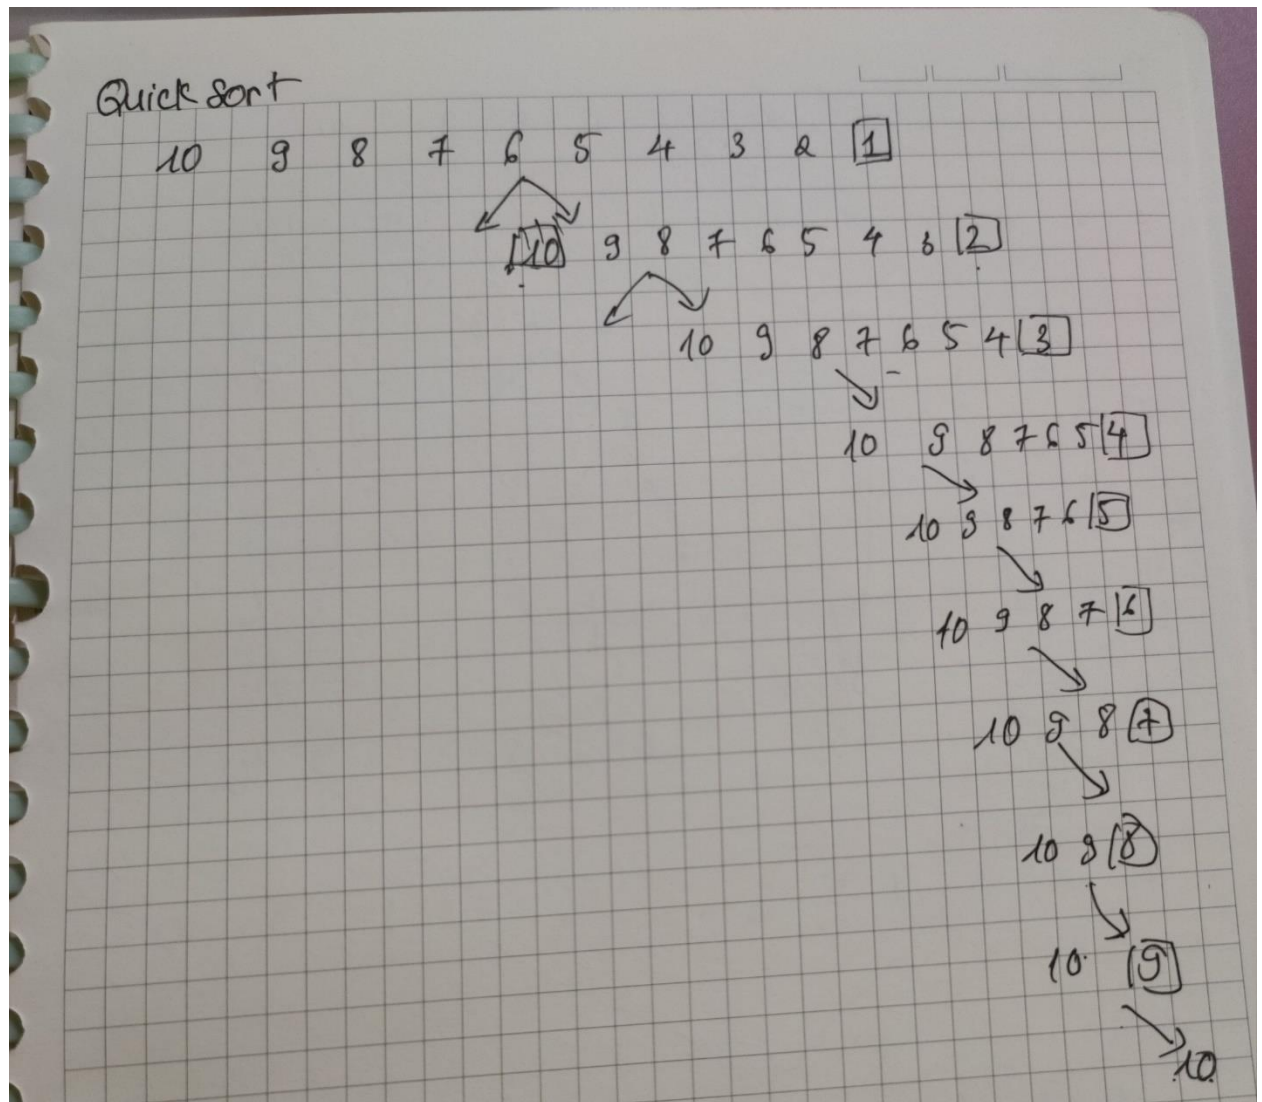 Quick Sort
10 9 8 7 6 5 4 3 2 1
10 9 8 7 6 5 4 3 2
10 9 8 7 6 5 4 3
10 9 8 7 6 5 4
10 9 8 7 6 5
10 9 8 7 6
10 9 8 7
10 9 8
10 9
10